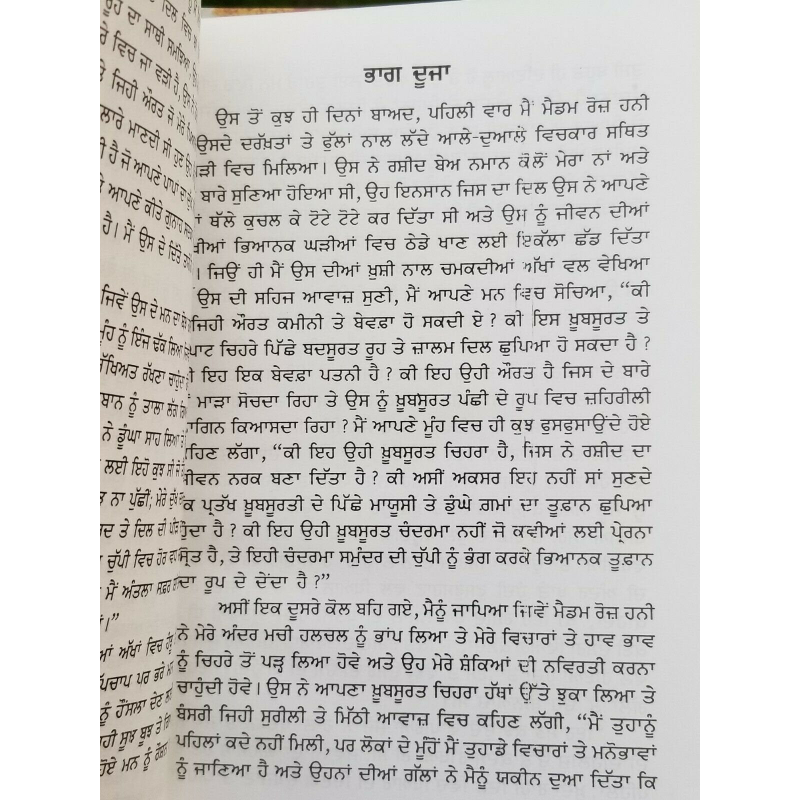 ਰੂਹ ਦਾ ਸਾਥੀ ਸਮਝਿਆ
ਵਿਚ ਜਾ ਵੜੀ ਹੈ,
ਜਿਹੀ ਔਰਤ ਜੋ ਮੇਰੇ
ਮਾਣਦੀ ਸੀ ਹੁਣ
ਹੈ ਜੋ ਆਪਣੇ ਪਾਪਾਂ ਦਾ
ਤੇ ਆਪਣੇ ਕੀਤੇ ਗੁਨਾਹ
ਹੈ। ਮੈਂ ਉਸ ਦੇ ਚਿੱਤੇ
ਜਿਵੇਂ ਉਸ ਦੇ ਮਨ ਦਾ
ਨੂੰ ਇੰਜ ਢੱਕ ਲਿਆ
ਰੱਖਣਾ ਚਾਹੁੰਦਾ
ਨੂੰ ਤਾਲਾ ਲੱਗ
ਨੇ ਡੂੰਘਾ ਸਾਹ ਲਿਆ
ਲਈ ਇਹੋ ਕੁਝ ਸੀ
ਨਾ ਪੁੱਛੀਂ; ਮੇਰੇ ਦੁੱਖ
ਤੇ ਦਿਲ ਦੀ
ਚੁੱਪੀ ਵਿਚ ਹੋਰ
ਮੈਂ ਅੰਤਲਾ ਸਫ਼ਰ
ਅੱਖਾਂ ਵਿਚ
ਪਰ ਭਰੇ
ਨੂੰ ਹੌਂਸਲਾ ਦੇਣ
ਸੂਝ ਬੂਝ ਤੇ
ਹੋਏ ਮਨ ਨੂੰ
ਭਾਗ ਦੂਜਾ
ਉਸ ਤੋਂ ਕੁਝ ਹੀ ਦਿਨਾਂ ਬਾਅਦ, ਪਹਿਲੀ ਵਾਰ ਮੈਂ ਮੈਡਮ ਰੋਜ਼ ਹਨੀ
ਉਸਦੇ ਦਰਖ਼ਤਾਂ ਤੇ ਫੁੱਲਾਂ ਨਾਲ ਲੱਦੇ ਆਲੇ-ਦੁਆਲੇ ਵਿਚਕਾਰ ਸਥਿਤ
ਵਿਚ ਮਿਲਿਆ। ਉਸ ਨੇ ਰਸ਼ੀਦ ਬੇਅ ਨਮਾਨ ਕੋਲੋਂ ਮੇਰਾ ਨਾਂ ਅਤੇ
ਬਾਰੇ ਸੁਣਿਆ ਹੋਇਆ ਸੀ, ਉਹ ਇਨਸਾਨ ਜਿਸ ਦਾ ਦਿਲ ਉਸ ਨੇ ਆਪਣੇ
ਥੱਲੇ ਕੁਚਲ ਕੇ ਟੋਟੇ ਟੋਟੇ ਕਰ ਦਿੱਤਾ ਸੀ ਅਤੇ ਉਸ ਨੂੰ ਜੀਵਨ ਦੀਆਂ
ਭਿਆਨਕ ਘੜੀਆਂ ਵਿਚ ਠੇਡੇ ਖਾਣ ਲਈ ਇਕੱਲਾ ਛੱਡ ਦਿੱਤਾ
। ਜਿਉਂ ਹੀ ਮੈਂ ਉਸ ਦੀਆਂ ਖ਼ੁਸ਼ੀ ਨਾਲ ਚਮਕਦੀਆਂ ਅੱਖਾਂ ਵਲ ਵੇਖਿਆ
ਉਸ ਦੀ ਸਹਿਜ ਆਵਾਜ਼ ਸੁਣੀ, ਮੈਂ ਆਪਣੇ ਮਨ ਵਿਚ ਸੋਚਿਆ, “ਕੀ
ਜਿਹੀ ਔਰਤ ਕਮੀਨੀ ਤੇ ਬੇਵਫ਼ਾ ਹੋ ਸਕਦੀ ਏ ? ਕੀ ਇਸ ਖ਼ੂਬਸੂਰਤ ਤੇ
ਚਿਹਰੇ ਪਿੱਛੇ ਬਦਸੂਰਤ ਰੂਹ ਤੇ ਜ਼ਾਲਮ ਦਿਲ ਛੁਪਿਆ ਹੋ ਸਕਦਾ ਹੈ ?
ਇਹ ਇਕ ਬੇਵਫ਼ਾ ਪਤਨੀ ਹੈ ? ਕੀ ਇਹ ਉਹੀ ਔਰਤ ਹੈ ਜਿਸ ਦੇ ਬਾਰੇ
ਮਾੜਾ ਸੋਚਦਾ ਰਿਹਾ ਤੇ ਉਸ ਨੂੰ ਖ਼ੂਬਸੂਰਤ ਪੰਛੀ ਦੇ ਰੂਪ ਵਿਚ ਜ਼ਹਿਰੀਲੀ
ਕਿਆਸਦਾ ਰਿਹਾ ? ਮੈਂ ਆਪਣੇ ਮੂੰਹ ਵਿਚ ਹੀ ਕੁਝ ਫੁਸਫੁਸਾਉਂਦੇ ਹੋਏ
ਲੱਗਾ, “ਕੀ ਇਹ ਉਹੀ ਖ਼ੂਬਸੂਰਤ ਚਿਹਰਾ ਹੈ, ਜਿਸ ਨੇ ਰਸ਼ੀਦ ਦਾ
ਜੀਵਨ ਨਰਕ ਬਣਾ ਦਿੱਤਾ ਹੈ ? ਕੀ ਅਸੀਂ ਅਕਸਰ ਇਹ ਨਹੀਂ ਸਾਂ ਸੁਣਦੇ
ਪ੍ਰਤੱਖ ਖ਼ੂਬਸੂਰਤੀ ਦੇ ਪਿੱਛੇ ਮਾਯੂਸੀ ਤੇ ਡੂੰਘੇ ਗ਼ਮਾਂ ਦਾ ਤੂਫ਼ਾਨ ਛੁਪਿਆ
ਹੁੰਦਾ ਹੈ ? ਕੀ ਇਹ ਉਹੀ ਖ਼ੂਬਸੂਰਤ ਚੰਦਰਮਾ ਨਹੀਂ ਜੋ ਕਵੀਆਂ ਲਈ ਪ੍ਰੇਰਨਾ
ਸ੍ਰੋਤ ਹੈ, ਤੇ ਇਹੀ ਚੰਦਰਮਾ ਸਮੁੰਦਰ ਦੀ ਚੁੱਪੀ ਨੂੰ ਭੰਗ ਕਰਕੇ ਭਿਆਨਕ ਤੂਫ਼ਾਨ
ਦਾ ਰੂਪ ਦੇ ਦੇਂਦਾ ਹੈ ?”
ਅਸੀਂ ਇਕ ਦੂਸਰੇ ਕੋਲ ਬਹਿ ਗਏ, ਮੈਨੂੰ ਜਾਪਿਆ ਜਿਵੇਂ ਮੈਡਮ ਰੋਜ਼ ਹਨੀ
ਨੇ ਮੇਰੇ ਅੰਦਰ ਮਚੀ ਹਲਚਲ ਨੂੰ ਭਾਂਪ ਲਿਆ ਤੇ ਮੇਰੇ ਵਿਚਾਰਾਂ ਤੇ ਹਾਵ ਭਾਵ
ਨੂੰ ਚਿਹਰੇ ਤੋਂ ਪੜ੍ਹ ਲਿਆ ਹੋਵੇ ਅਤੇ ਉਹ ਮੇਰੇ ਸ਼ੰਕਿਆਂ ਦੀ ਨਵਿਰਤੀ ਕਰਨਾ
ਚਾਹੁੰਦੀ ਹੋਵੇ। ਉਸ ਨੇ ਆਪਣਾ ਖ਼ੂਬਸੂਰਤ ਚਿਹਰਾ ਹੱਥਾਂ ਉੱਤੇ ਝੁਕਾ ਲਿਆ ਤੇ
ਬੰਸਰੀ ਜਿਹੀ ਸੁਰੀਲੀ ਤੇ ਮਿੱਠੀ ਆਵਾਜ਼ ਵਿਚ ਕਹਿਣ ਲੱਗੀ, “ਮੈਂ ਤੁਹਾਨੂੰ
ਪਹਿਲਾਂ ਕਦੇ ਨਹੀਂ ਮਿਲੀ, ਪਰ ਲੋਕਾਂ ਦੇ ਮੂੰਹੋਂ ਮੈਂ ਤੁਹਾਡੇ ਵਿਚਾਰਾਂ ਤੇ ਮਨੋਭਾਵਾਂ
ਨੂੰ ਜਾਣਿਆ ਹੈ ਅਤੇ ਉਹਨਾਂ ਦੀਆਂ ਗੱਲਾਂ ਨੇ ਮੈਨੂੰ ਯਕੀਨ ਦੁਆ ਦਿੱਤਾ ਕਿ